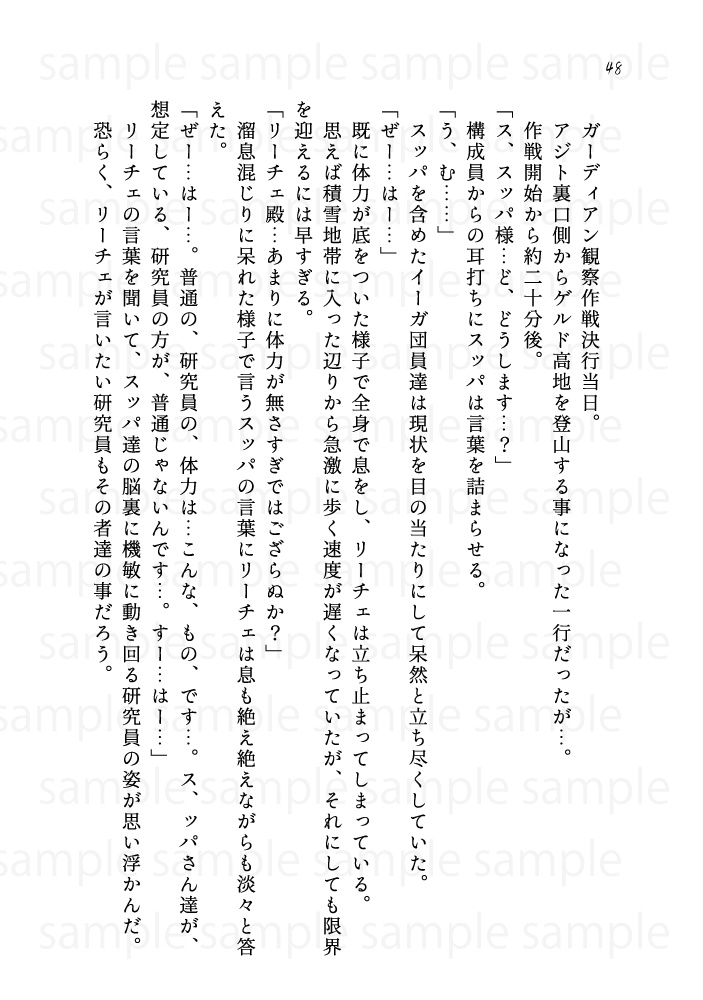 48
ガーディアン観察作戦決行当日。
アジト裏口側からゲルド高地を登山する事になった一行だったが…。
作戦開始から約二十分後。
「ス、スッパ様…ど、どうします…？」
構成員からの耳打ちにスッパは言葉を詰まらせる。
「う、む……」
スッパを含めたイーガ団員達は現状を目の当たりにして呆然と立ち尽くしていた。
「ぜー…はー…」
既に体力が底をついた様子で全身で息をし、リーチェは立ち止まってしまっている。
思えば積雪地帯に入った辺りから急激に歩く速度が遅くなっていたが、それにしても限界
を迎えるには早すぎる。
「リーチェ殿…あまりに体力が無さすぎではござらぬか？」
溜息混じりに呆れた様子で言うスッパの言葉にリーチェは息も絶え絶えながらも淡々と答
えた。
「ぜー…はー…。普通の、研究員の、体力は…こんな、もの、です…。ス、ッパさん達が、
想定している、研究員の方が、普通じゃないんです…。すー…はー…」
リーチェの言葉を聞いて、スッパ達の脳裏に機敏に動き回る研究員の姿が思い浮かんだ。
恐らく、リーチェが言いたい研究員もその者達の事だろう。
sample sample sample sample
sample sample sample sample sample
sample sample sample sample
sample sample sample sample sample
sample sample sample sample
sample sample sample sample sample
sample sample sample sample
sample sample sample sample sample
sample sample sample sample
sample sample sample sample sample
sample sample sample sample
sample sample sample sample sample
sample sample sample sample